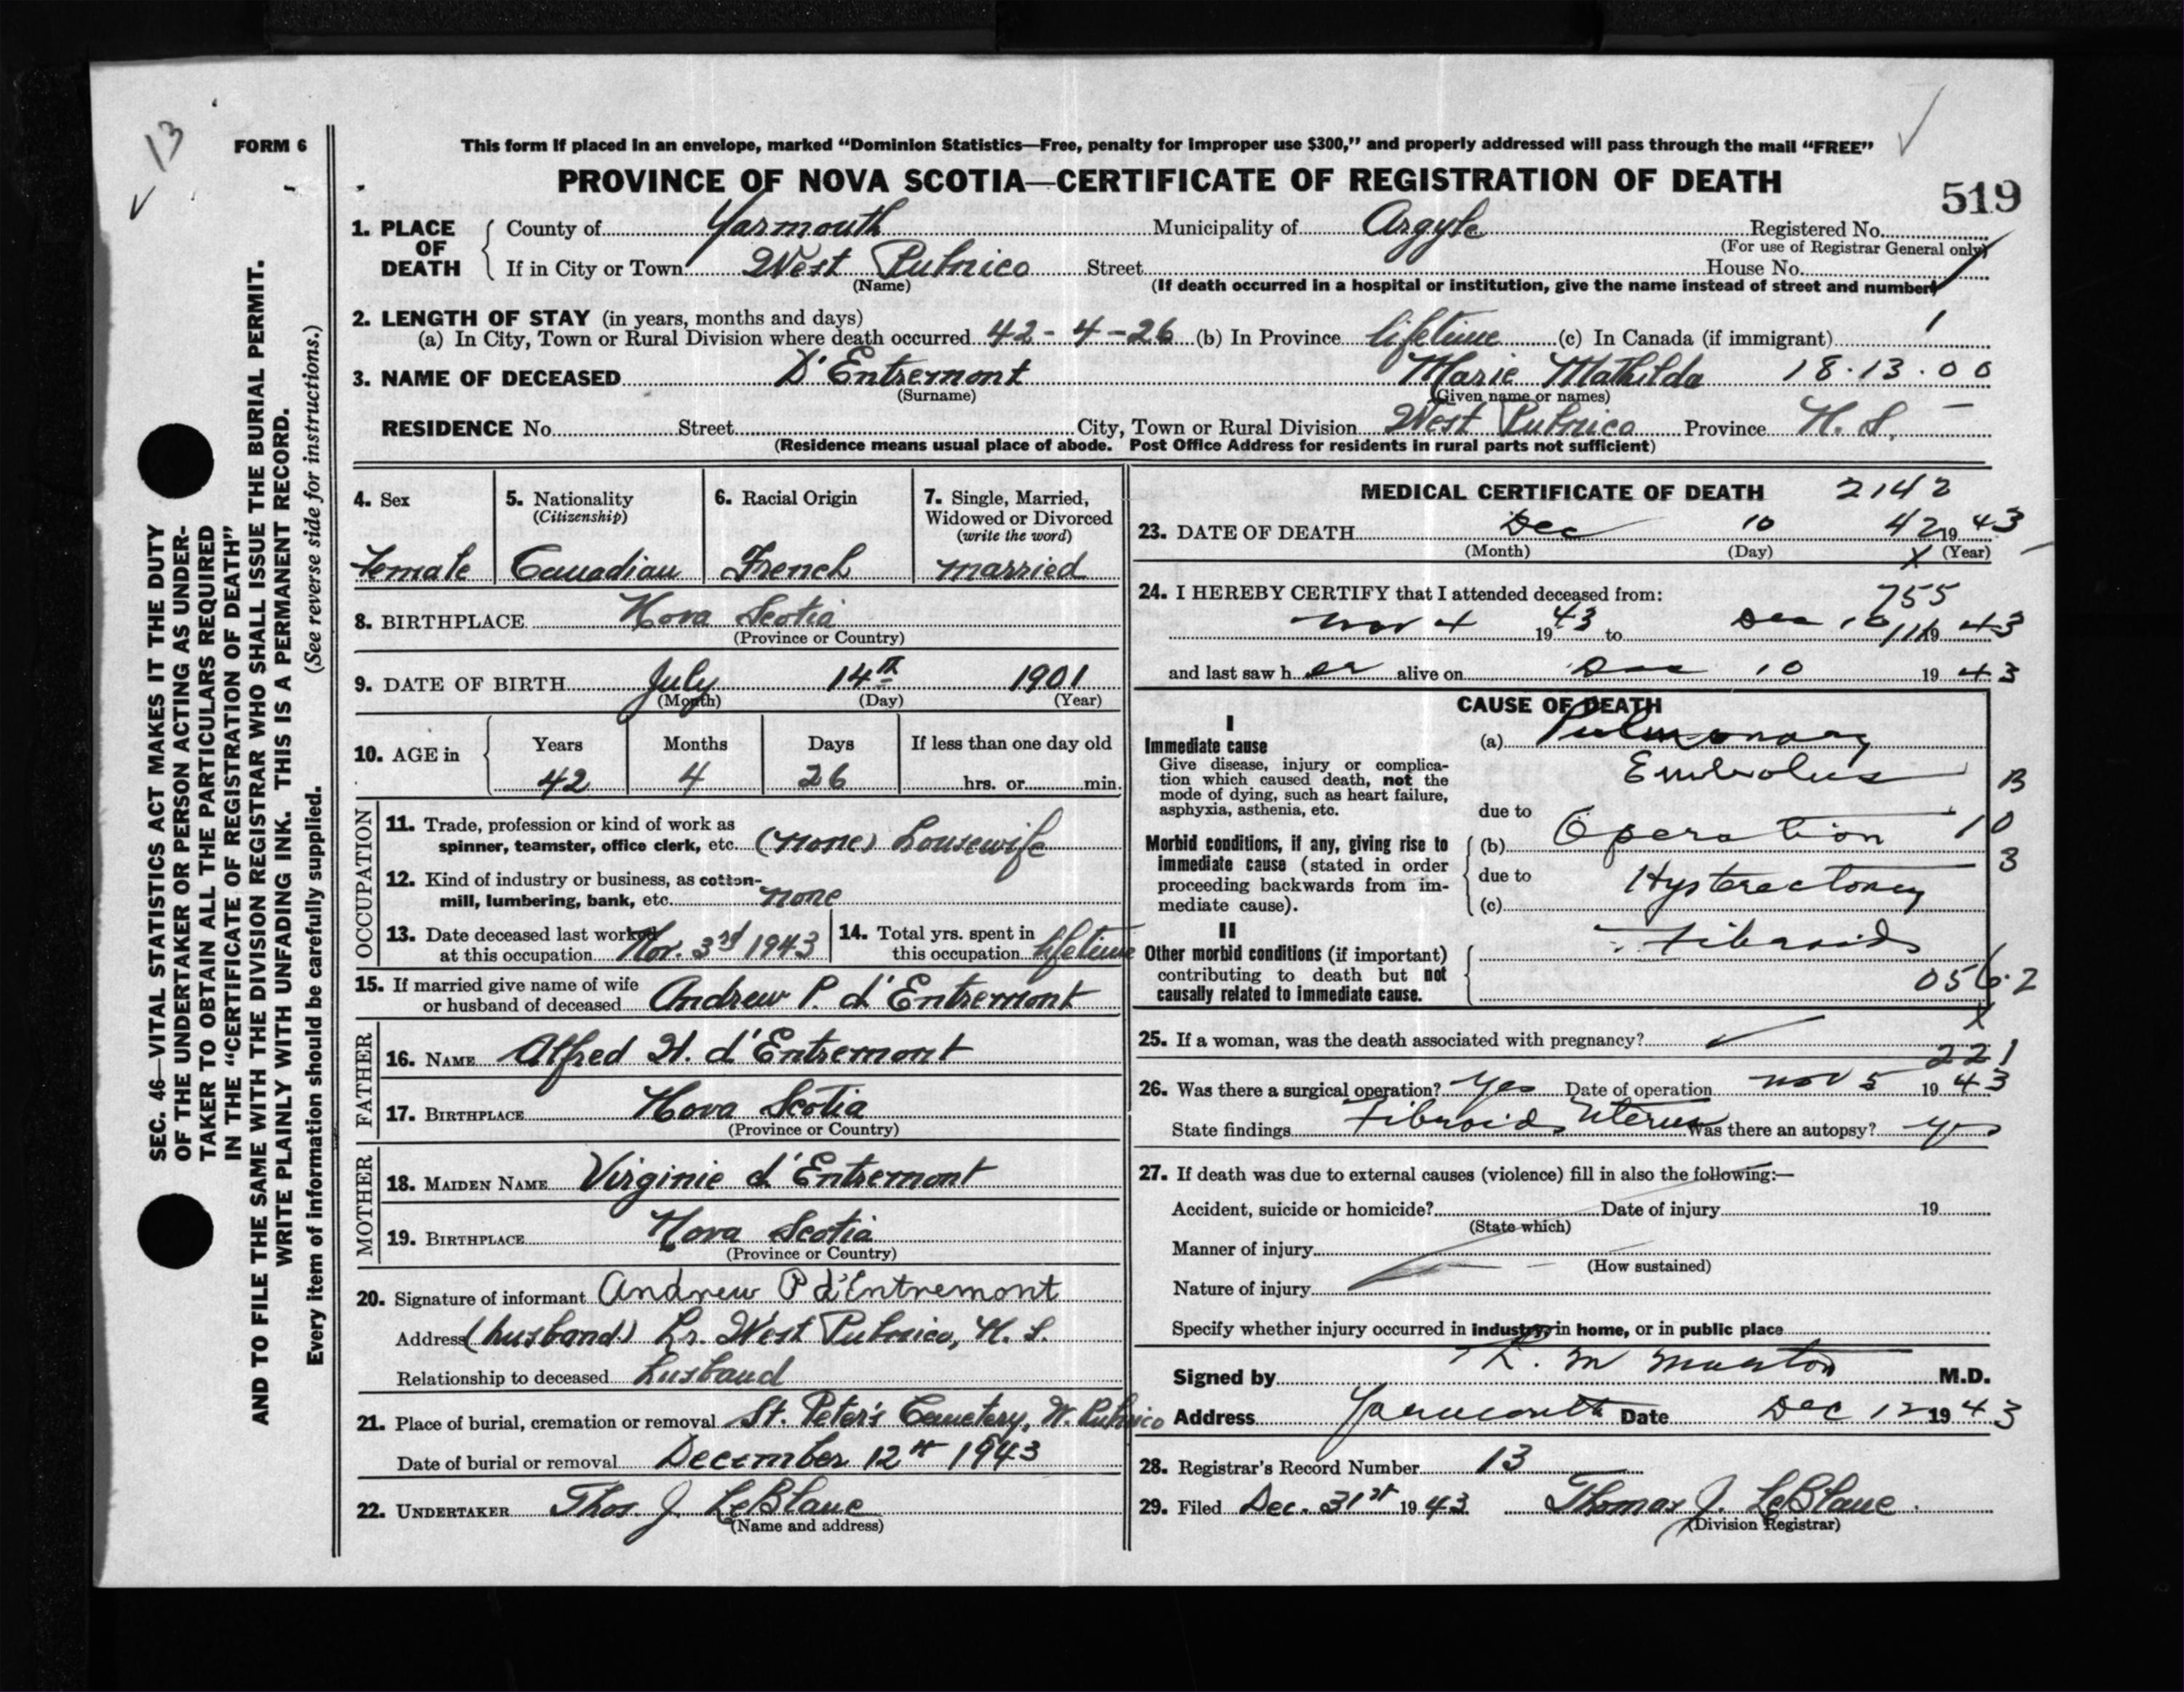 13
FORM 6
This form if placed in an envelope, marked “Dominion Statistics—Free, penalty for improper use $300,” and properly addressed will pass through the mail “FREE”
PROVINCE OF NOVA SCOTIA—CERTIFICATE OF REGISTRATION OF DEATH
519
1. PLACE OF DEATH
County of Yarmouth Municipality of Argyle Registered No.
(For use of Registrar General only)
If in City or Town West Pubnico Street House No.
(Name) (If death occurred in a hospital or institution, give the name instead of street and number)
2. LENGTH OF STAY (in years, months and days)
(a) In City, Town or Rural Division where death occurred 42-4-26 (b) In Province lifetime (c) In Canada (if immigrant)
3. NAME OF DECEASED D'Entremont Marie Mathilda 18.13.00
(Surname) (Given name or names)
RESIDENCE No. Street City, Town or Rural Division West Pubnico Province N. S.
(Residence means usual place of abode. Post Office Address for residents in rural parts not sufficient)
4. Sex
female
5. Nationality
(Citizenship)
Canadian
6. Racial Origin
French
7. Single, Married,
Widowed or Divorced
(write the word)
married
8. BIRTHPLACE Nova Scotia
(Province or Country)
9. DATE OF BIRTH July 14th 1901
(Month) (Day) (Year)
10. AGE in
Years Months Days If less than one day old
42 4 26 hrs. or min.
OCCUPATION
11. Trade, profession or kind of work as
spinner, teamster, office clerk, etc. (none) housewife
12. Kind of industry or business, as cotton-
mill, lumbering, bank, etc. none
13. Date deceased last worked
at this occupation Nov. 3rd 1943
14. Total yrs. spent in
this occupation lifetime
15. If married give name of wife
or husband of deceased Andrew P. d'Entremont
FATHER
16. NAME Alfred H. d'Entremont
17. BIRTHPLACE Nova Scotia
(Province or Country)
MOTHER
18. MAIDEN NAME Virginie d'Entremont
19. BIRTHPLACE Nova Scotia
(Province or Country)
20. Signature of informant Andrew P d'Entremont
Address (husband) Lr. West Pubnico, N. S.
Relationship to deceased husband
21. Place of burial, cremation or removal St. Peter's Cemetery, W. Pubnico
Date of burial or removal December 12th 1943
22. UNDERTAKER Thos. J. LeBlanc
(Name and address)
MEDICAL CERTIFICATE OF DEATH 2142
23. DATE OF DEATH Dec 10 42 19 43
(Month) (Day) (Year)
24. I HEREBY CERTIFY that I attended deceased from:
755
Nov 4 19 43 to Dec 10 19 43
and last saw h er alive on Dec 10 19 43
CAUSE OF DEATH
I
Immediate cause
Give disease, injury or complica-
tion which caused death, not the
mode of dying, such as heart failure,
asphyxia, asthenia, etc.
(a) Pulmonary
Embolus
B
due to
10
3
Morbid conditions, if any, giving rise to
immediate cause (stated in order
proceeding backwards from im-
mediate cause).
(b) Operation
due to
Hysterectomy
(c)
II
Other morbid conditions (if important)
contributing to death but not
causally related to immediate cause.
Fibroids
056.2
25. If a woman, was the death associated with pregnancy?
221
26. Was there a surgical operation? Yes Date of operation Nov 5 19 43
State findings Fibroids Uterus Was there an autopsy? Yes
27. If death was due to external causes (violence) fill in also the following:—
Accident, suicide or homicide? Date of injury 19
(State which)
Manner of injury
(How sustained)
Nature of injury
Specify whether injury occurred in industry, in home, or in public place
Signed by M.D.
Address Yarmouth Date Dec 12 19 43
28. Registrar's Record Number 13
29. Filed Dec. 31st 19 43 Thomas J. LeBlanc
(Division Registrar)
SEC. 46—VITAL STATISTICS ACT MAKES IT THE DUTY
OF THE UNDERTAKER OR PERSON ACTING AS UNDER-
TAKER TO OBTAIN ALL THE PARTICULARS REQUIRED
IN THE “CERTIFICATE OF REGISTRATION OF DEATH”
AND TO FILE THE SAME WITH THE DIVISION REGISTRAR WHO SHALL ISSUE THE BURIAL PERMIT.
WRITE PLAINLY WITH UNFADING INK. THIS IS A PERMANENT RECORD.
Every item of information should be carefully supplied. (See reverse side for instructions.)